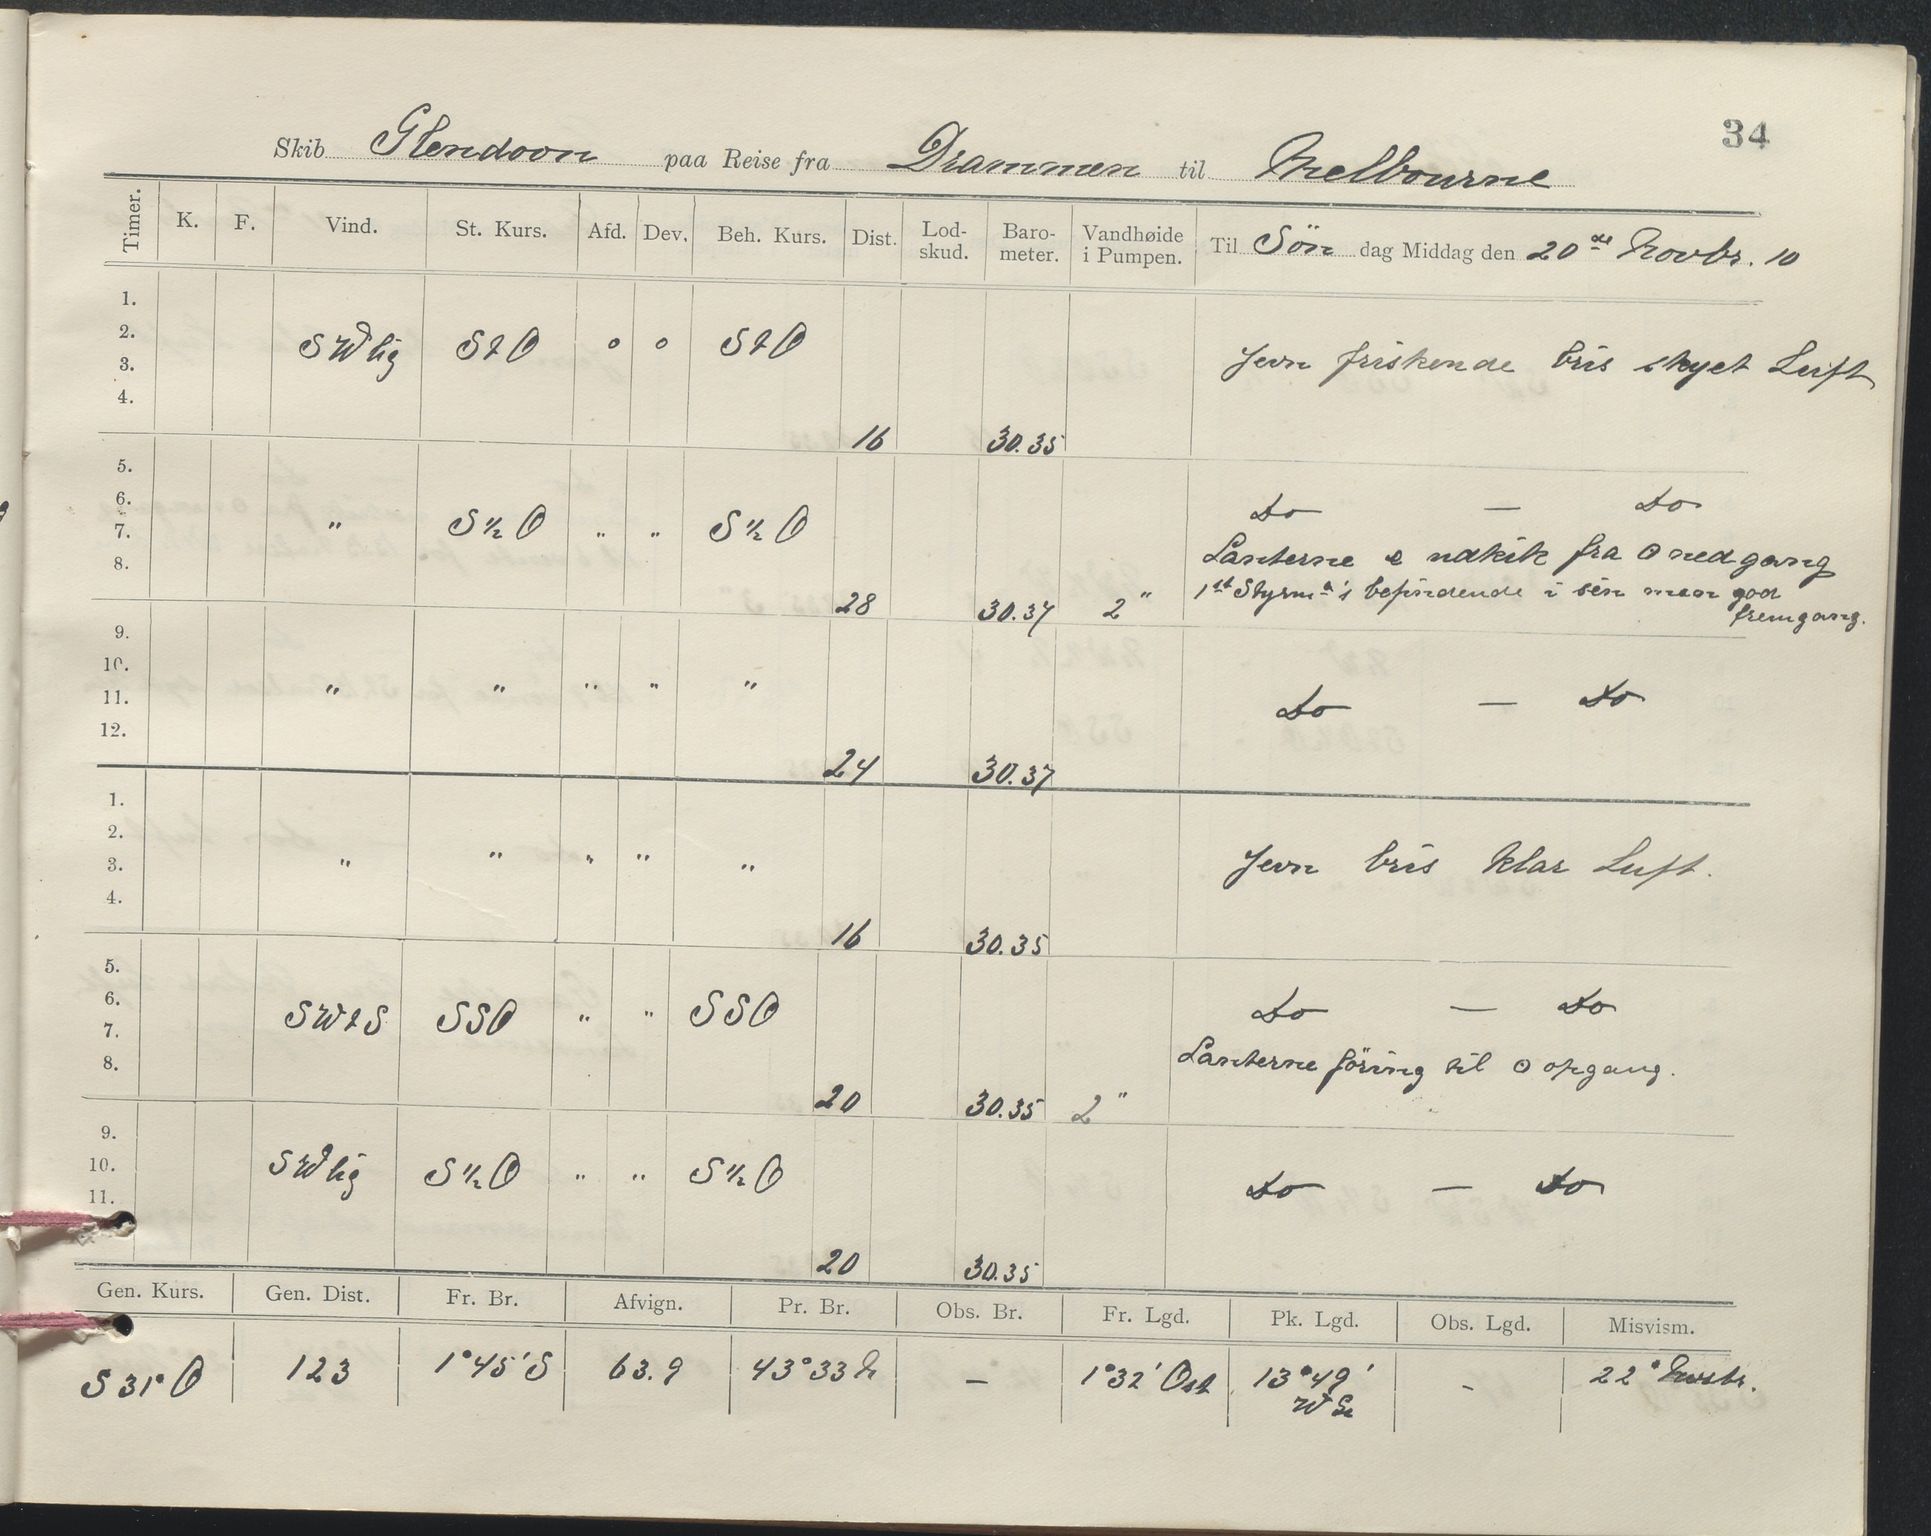 34
Skib Glendoon paa Reise fra Drammen til Melbourne
Timer. K. F. Vind. St. Kurs. Afd. Dev. Beh. Kurs. Dist. Lod-skud. Baro-meter. Vandhøide i Pumpen. Til Søn dag Middag den 20de Novbr. 10
1.
2. SWlig StO o o StO
3. Jevn friskende bris skyet Luft
4.
16 30.35
5.
6. do — do
7. " S½O " " S½O
8. Lanterne & udkik fra ʘ nedgang
1st Styrm's befindende i sën men god
28 30.37 2" fremgang.
9.
10.
11. " " " " " do — do
12.
24 30.37
1.
2.
3. " " " " " Jevn bris klar Luft.
4.
16 30.35
5.
6. SWtS SSO " " SSO do — do
7.
8. Lanterne föring til ʘ opgang.
20 30.35 2"
9.
10. SWlig S½O " " S½O
11. do — do
20 30.35
Gen. Kurs. Gen. Dist. Fr. Br. Afvign. Pr. Br. Obs. Br. Fr. Lgd. Pk. Lgd. Obs. Lgd. Misvism.
S 31° O 123 1°45' S 63.9 43°33 N — 1°32' Ost 13°49' - 22°